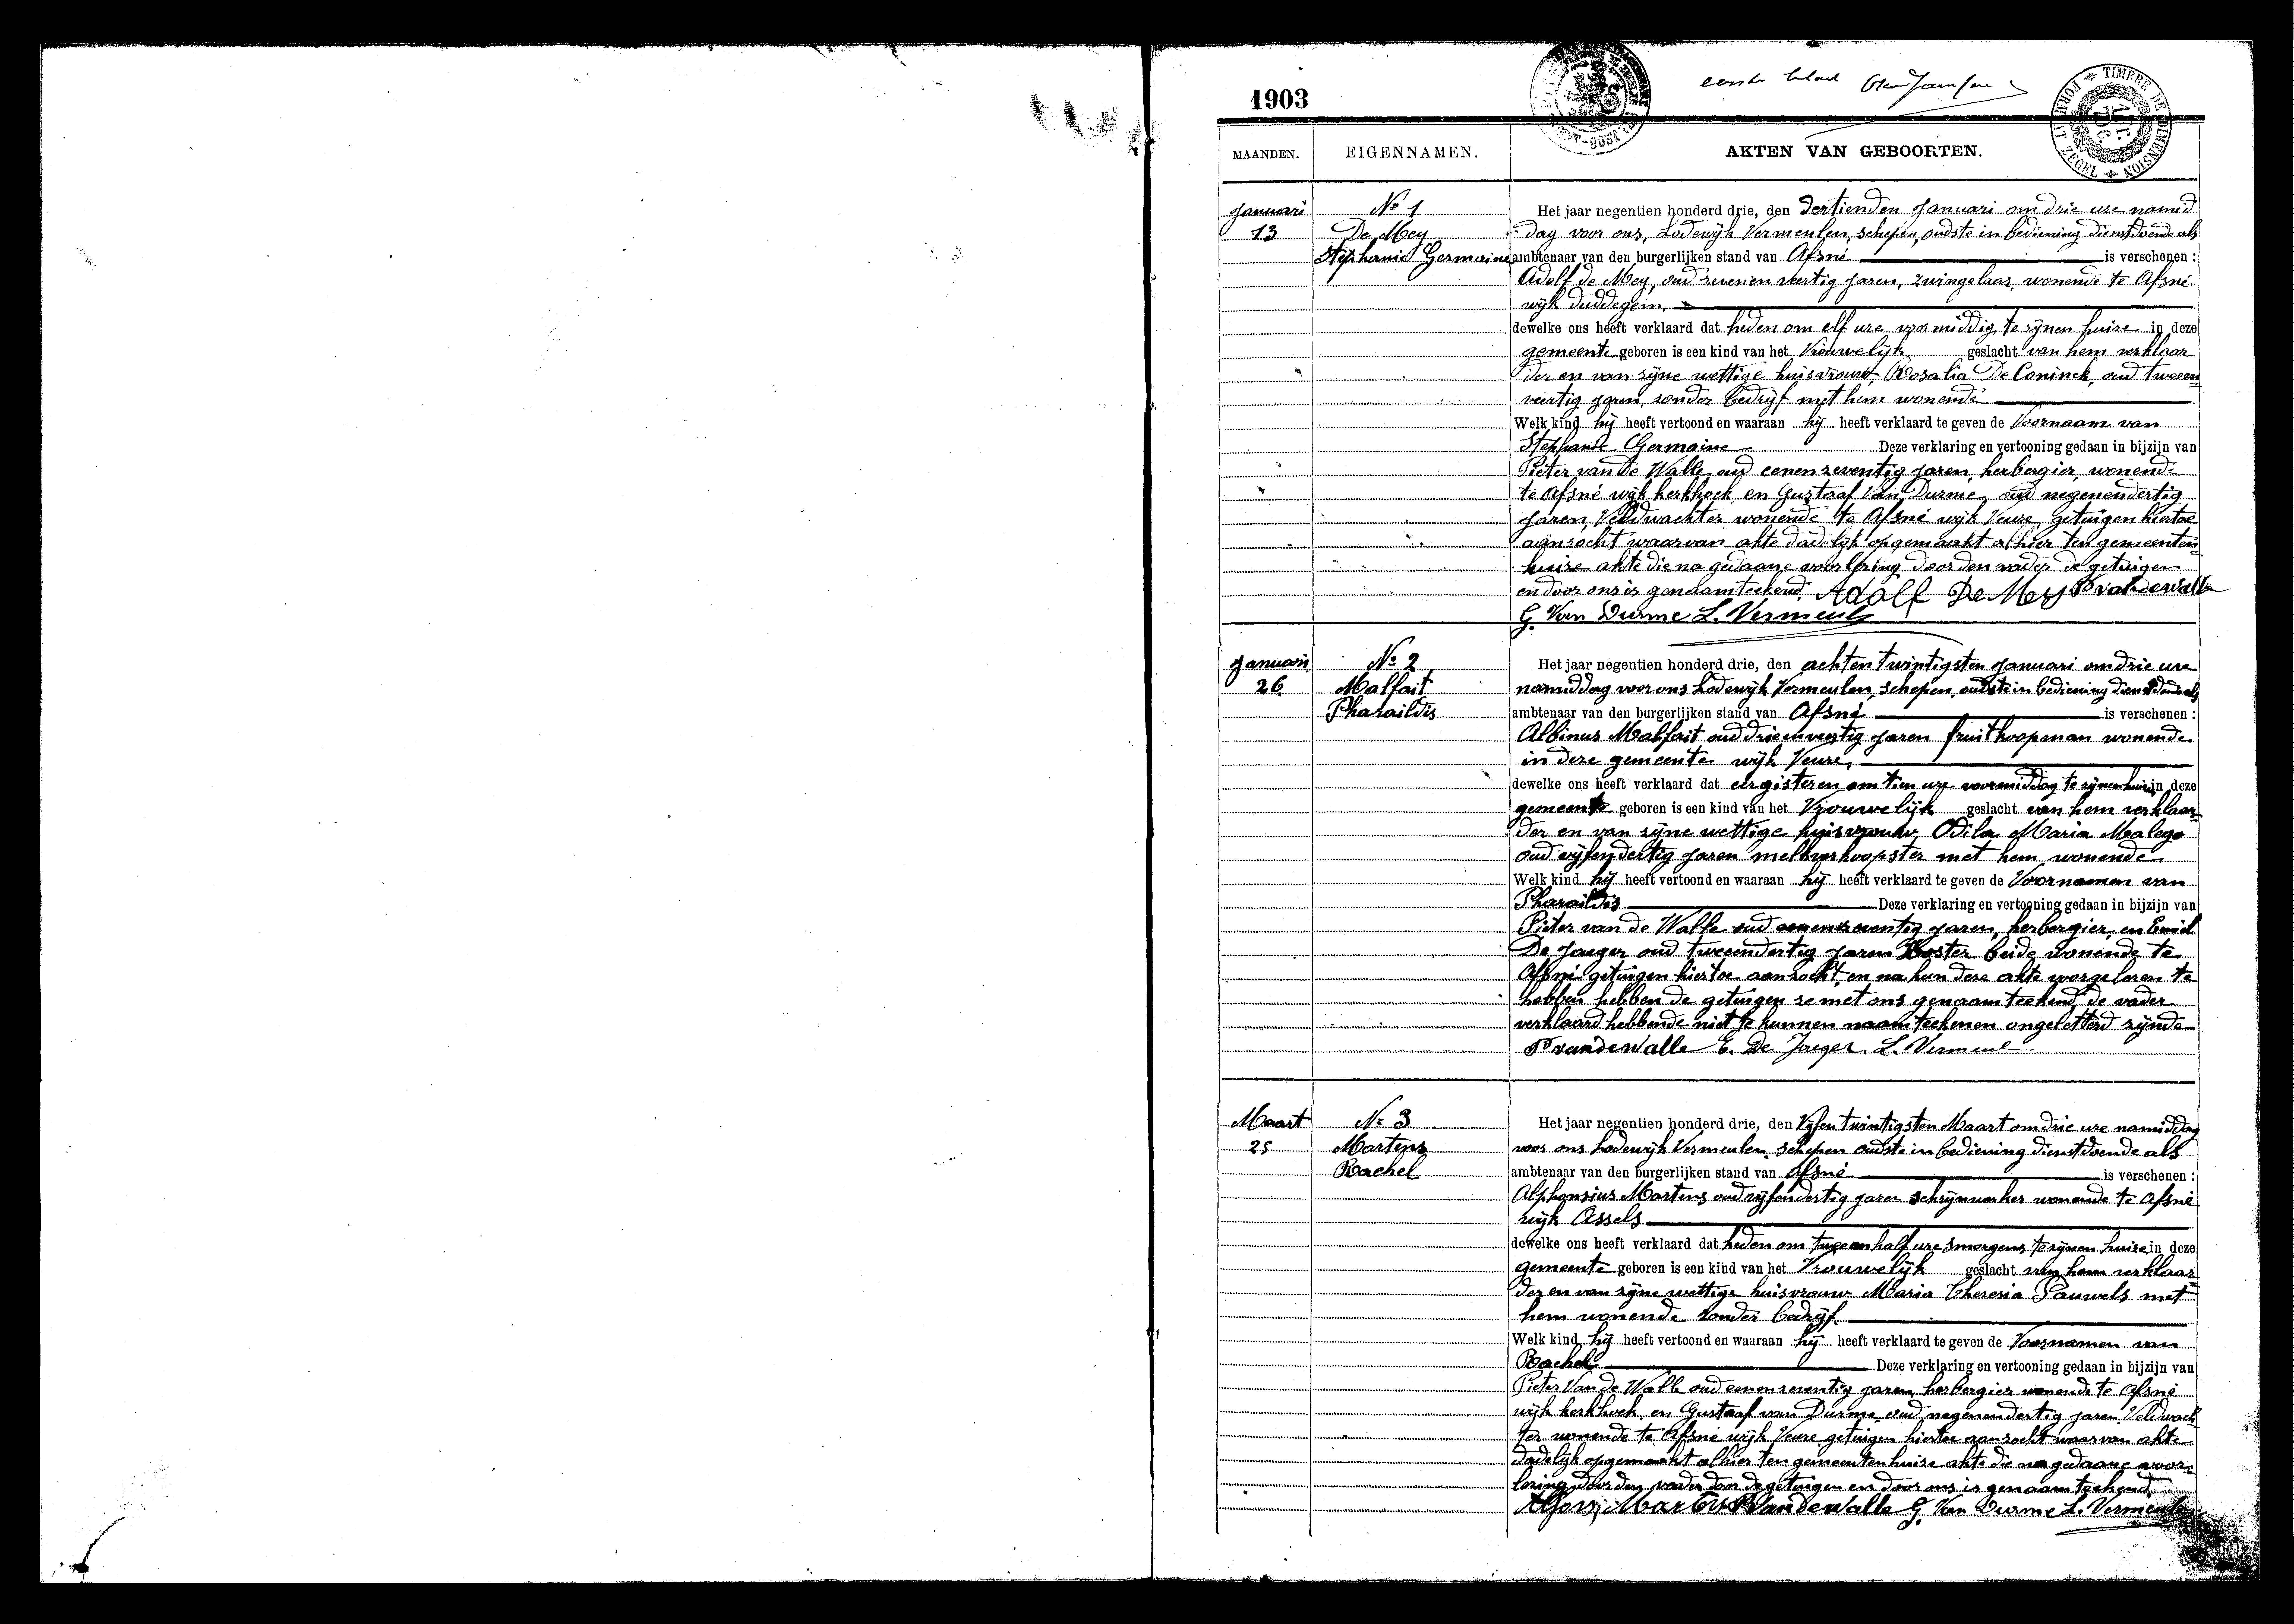 1903
eerste blad
TIMBRE DE DIMENSION
FORMAAT ZEGEL
MAANDEN.
EIGENNAMEN.
AKTEN VAN GEBOORTEN.
Januari
13
No 1
De Mey
Stéphanie Germaine
Het jaar negentien honderd drie, den dertienden Januari om drie ure namid
dag voor ons, Lodewijk Vermeulen, schepen, oudste in bediening dienstdoende als
ambtenaar van den burgerlijken stand van Afsné is verschenen :
Adolf de Mey, oud zevenen veertig jaren, zwingelaar, wonende te Afsné
wijk duddegem,
dewelke ons heeft verklaard dat heden om elf ure voormiddig, te zijnen huize in deze
gemeente geboren is een kind van het Vrouwelijk geslacht van hem verklaar
der en van zijne wettige huisvrouw, Rosalia De Coninck, oud tweeen
veertig jaren, zonder bedrijf met hem wonende
Welk kind hij heeft vertoond en waaraan hij heeft verklaard te geven de Voornaam van
Stephanie Germaine Deze verklaring en vertooning gedaan in bijzijn van
Pieter van de Walle oud eenenzeventig jaren, herbergier, wonende
te Afsné wijk kerkhoek en Gustaaf Van Durme, oud negenendertig
jaren, Veldwachter wonende te Afsné wijk Veure, getuigen hiertoe
aanzocht waarvan akte dadelijk opgemaakt alhier ten gemeenten
huize akte die na gedaane voorlezing door den vader de getuigen
en door ons is genaamteekend. Adolf De Mey P vandewalle
G. Van Durme L. Vermeul
Januari
26
No 2
Malfait
Pharaildis
Het jaar negentien honderd drie, den achten twintigsten Januari om drie ure
namiddag voor ons Lodewijk Vermeulen, schepen, oudste in bediening dienstdoende als
ambtenaar van den burgerlijken stand van Afsné is verschenen :
Albinus Malfait oud drieenveertig jaren fruitkoopman wonende
in deze gemeente wijk Veure,
dewelke ons heeft verklaard dat eergisteren om tien ure voormiddag te zijnen huize in deze
gemeente geboren is een kind van het Vrouwelijk geslacht van hem verklaar
der en van zijne wettige huisvrouw, Odila Maria Malego
oud vijfendertig jaren melkverkoopster met hem wonende
Welk kind hij heeft vertoond en waaraan hij heeft verklaard te geven de Voornamen van
Pharaildis Deze verklaring en vertooning gedaan in bijzijn van
Pieter van de Walle oud eenenzeventig jaren, herbergier, en Emiel
De Jaeger oud tweeendertig jaren Koster beide wonende te
Afsné getuigen hiertoe aanzocht, en na hun deze akte voorgelezen te
hebben hebben de getuigen ze met ons genaamteekend, de vader
verklaard hebbende niet te kunnen naamteekenen ongeletterd zijnde
P vandewalle E. De Jaeger. L. Vermeul
Maart
25
No 3
Martens
Rachel
Het jaar negentien honderd drie, den Vijfentwintigsten Maart om drie ure namiddag
voor ons Lodewijk Vermeulen, schepen oudste in bediening dienstdoende als
ambtenaar van den burgerlijken stand van Afsné is verschenen :
Alphonsius Martens oud vijfendertig jaren schrijnwerker wonende te Afsné
wijk Assels
dewelke ons heeft verklaard dat heden om twee en half ure smorgens te zijnen huize in deze
gemeente geboren is een kind van het Vrouwelijk geslacht van hem verklaar
der en van zijne wettige huisvrouw Maria Theresia Pauwels met
hem wonende zonder bedrijf
Welk kind hij heeft vertoond en waaraan hij heeft verklaard te geven de Voornamen van
Rachel Deze verklaring en vertooning gedaan in bijzijn van
Pieter Van de Walle oud eenenzeventig jaren, herbergier wonende te Afsné
wijk kerkhoek, en Gustaaf van Durme, oud negenendertig jaren, Veldwach
ter wonende te Afsné wijk Veure getuigen hiertoe aanzocht waarvan akte
dadelijk opgemaakt alhier ten gemeentenhuize akte die na gedaane voor
lezing door den vader door de getuigen en door ons is genaamteekend
Alfons Martens P Vandewalle G. Van Durme L. Vermeulen